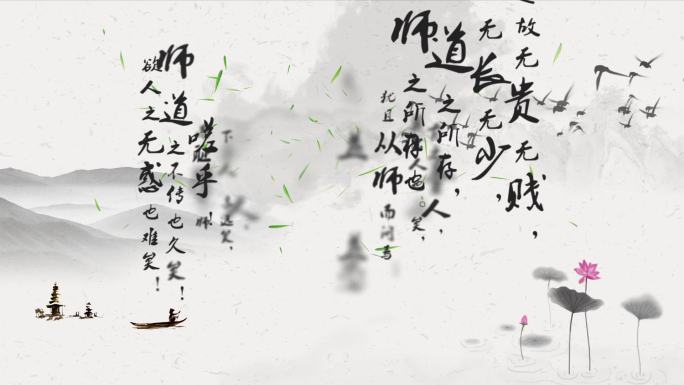 故无贵无贱，
无长无少，
道之所存，
师之所存也。
犹且从师而问焉
嗟乎！
师道之不传也久矣！
欲人之无惑也难矣！